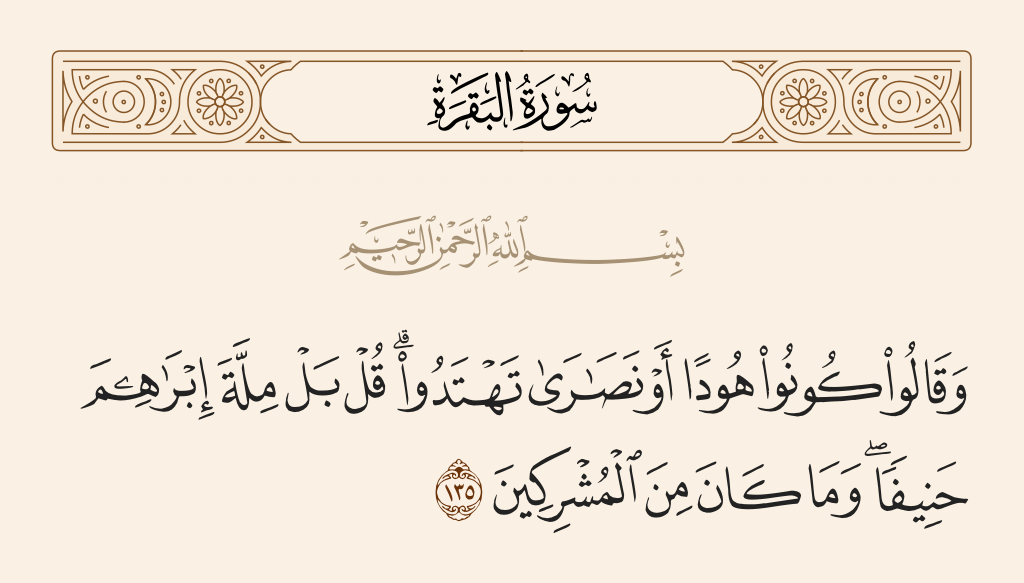 سُورَةُ البَقَرَةِ
بِسْمِ ٱللَّهِ ٱلرَّحْمَٰنِ ٱلرَّحِيمِ
وَقَالُوا۟ كُونُوا۟ هُودًا أَوْ نَصَـٰرَىٰ تَهْتَدُوا۟ ۗ قُلْ بَلْ مِلَّةَ إِبْرَٰهِـۧمَ
حَنِيفًا ۖ وَمَا كَانَ مِنَ ٱلْمُشْرِكِينَ ١٣٥